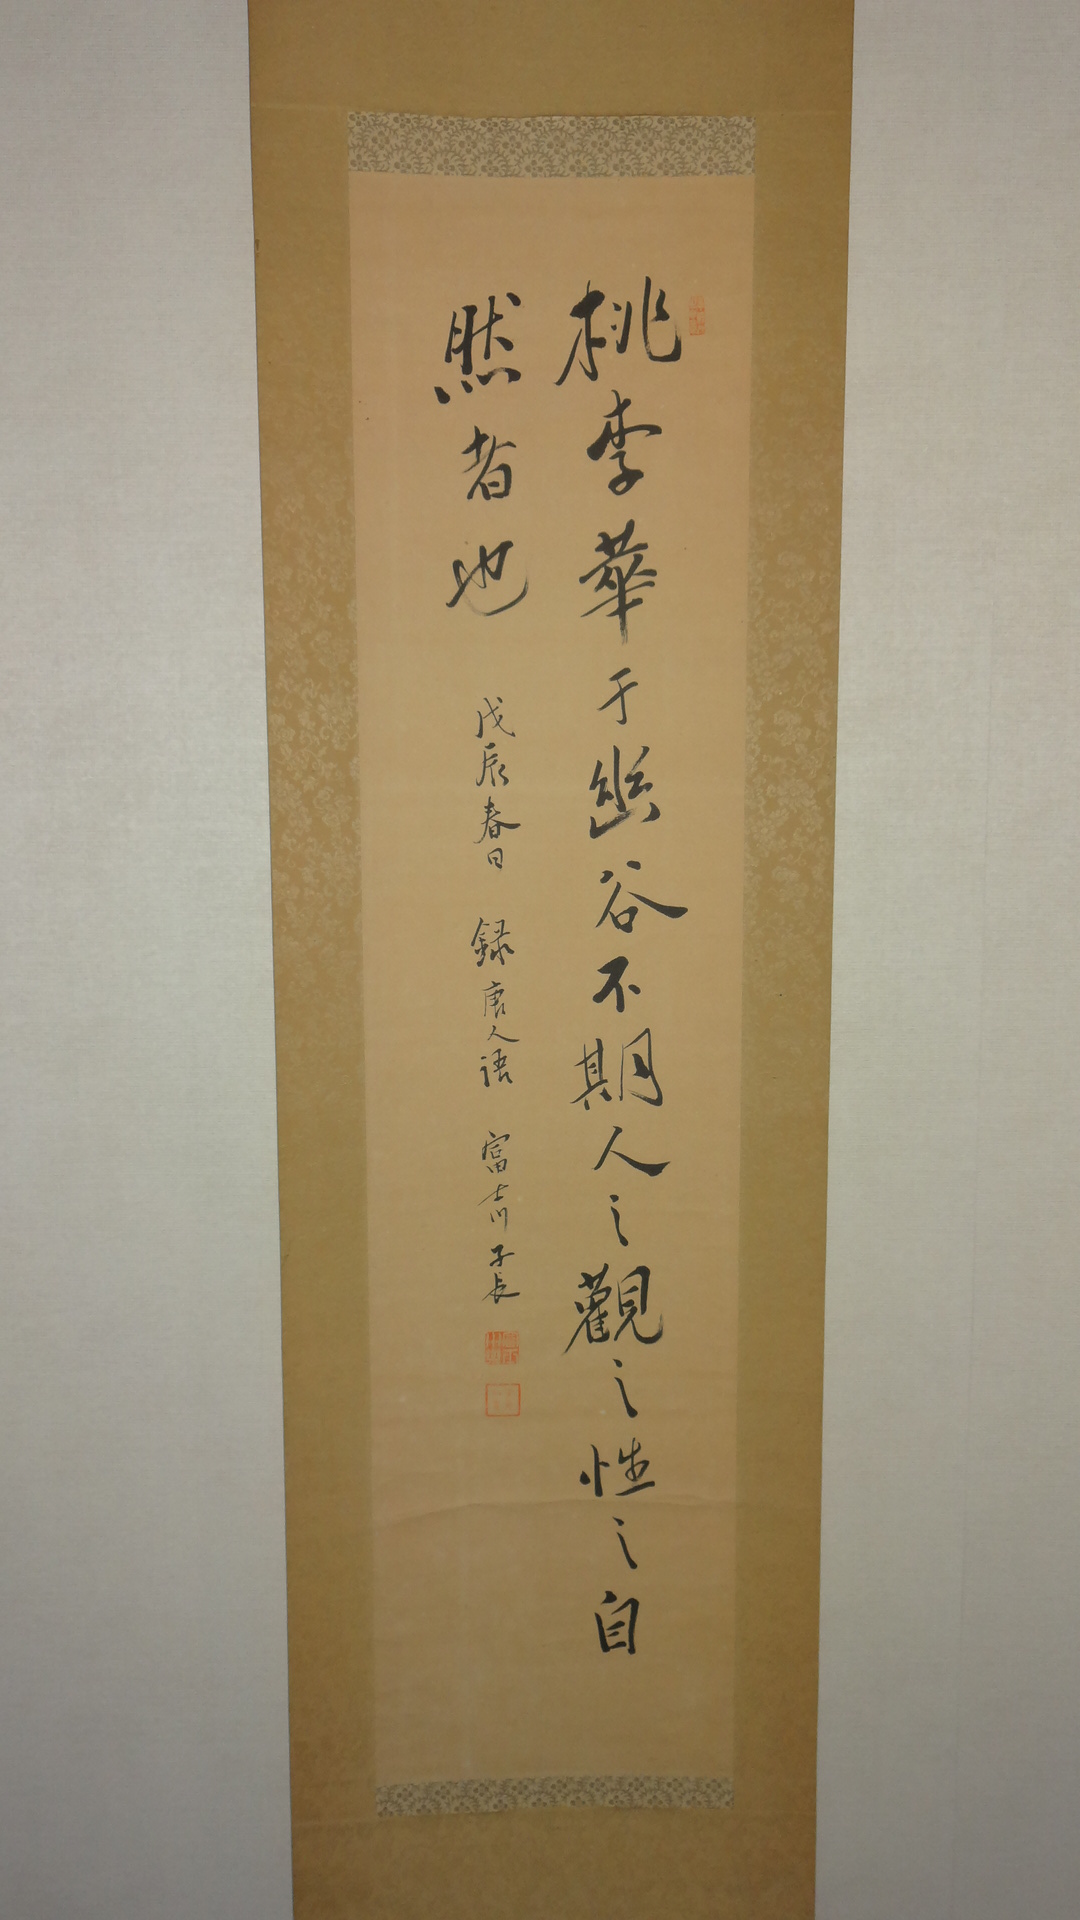 桃李華于幽谷不期人之觀之性之自
然者也
戊辰春日 録唐人語 富士川子長